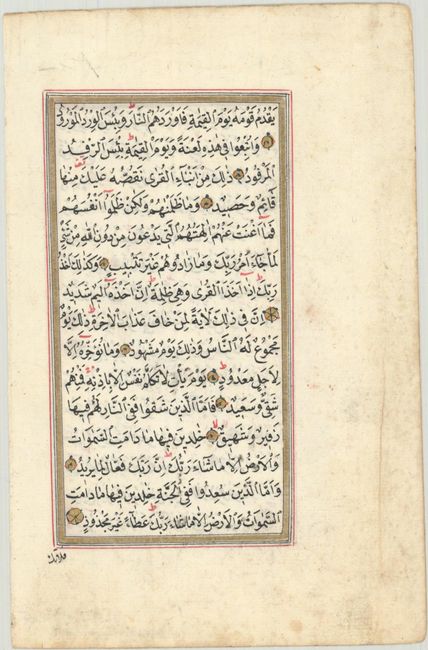 يَقْدُمُ قَوْمَهُ يَوْمَ الْقِيٰمَةِ فَاَوْرَدَهُمُ النَّارَ وَبِئْسَ الْوِرْدُ الْمَوْرُودُ
وَاُتْبِعُوا فِي هٰذِهِ لَعْنَةً وَيَوْمَ الْقِيٰمَةِ بِئْسَ الرِّفْدُ
الْمَرْفُودُ ذٰلِكَ مِنْ اَنْبَاءِ الْقُرٰى نَقُصُّهُ عَلَيْكَ مِنْهَا
قَائِمٌ وَحَصِيدٌ وَمَا ظَلَمْنَاهُمْ وَلٰكِنْ ظَلَمُوا اَنْفُسَهُمْ
فَمَا اَغْنَتْ عَنْهُمْ اٰلِهَتُهُمُ الَّتِي يَدْعُونَ مِنْ دُونِ اللّٰهِ مِنْ شَيْءٍ
لَمَّا جَاءَ اَمْرُ رَبِّكَ وَمَا زَادُوهُمْ غَيْرَ تَتْبِيبٍ وَكَذٰلِكَ اَخْذُ
رَبِّكَ اِذَا اَخَذَ الْقُرٰى وَهِيَ ظَالِمَةٌ اِنَّ اَخْذَهُ اَلِيمٌ شَدِيدٌ
اِنَّ فِي ذٰلِكَ لَاٰيَةً لِمَنْ خَافَ عَذَابَ الْاٰخِرَةِ ذٰلِكَ يَوْمٌ
مَجْمُوعٌ لَهُ النَّاسُ وَذٰلِكَ يَوْمٌ مَشْهُودٌ وَمَا نُؤَخِّرُهُ اِلَّا
لِاَجَلٍ مَعْدُودٍ يَوْمَ يَأْتِ لَا تَكَلَّمُ نَفْسٌ اِلَّا بِاِذْنِهِ فَمِنْهُمْ
شَقِيٌّ وَسَعِيدٌ فَاَمَّا الَّذِينَ شَقُوا فَفِي النَّارِ لَهُمْ فِيهَا
زَفِيرٌ وَشَهِيقٌ خٰلِدِينَ فِيهَا مَا دَامَتِ السَّمٰوَاتُ
وَالْاَرْضُ اِلَّا مَا شَاءَ رَبُّكَ اِنَّ رَبَّكَ فَعَّالٌ لِمَا يُرِيدُ
وَاَمَّا الَّذِينَ سُعِدُوا فَفِي الْجَنَّةِ خٰلِدِينَ فِيهَا مَا دَامَتِ
السَّمٰوَاتُ وَالْاَرْضُ اِلَّا مَا شَاءَ رَبُّكَ عَطَاءً غَيْرَ مَجْذُوذٍ
فلاتك